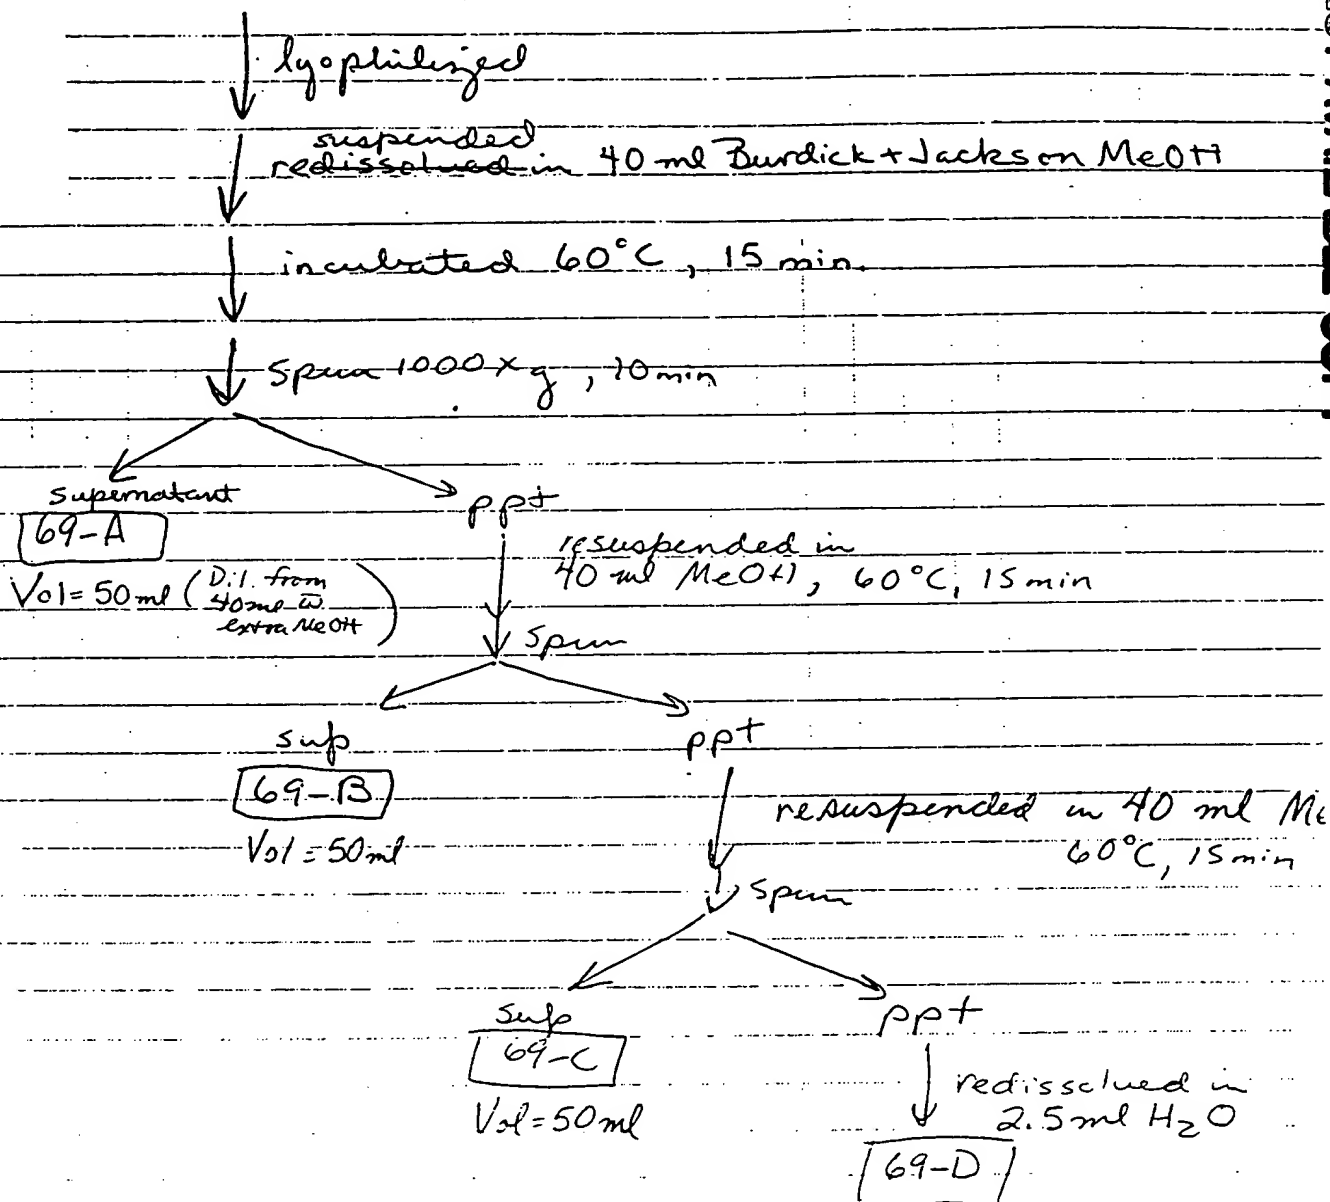 lyophilized
suspended
redissolved in 40 ml Burdick + Jackson MeOH
incubated 60°C, 15 min.
Spun 1000 x g, 10 min
supernatant
69-A
Vol = 50 ml (Dil. from
40 ml w̄
extra MeOH)
ppt
resuspended in
40 ml MeOH, 60°C, 15 min
Spun
sup
69-B
Vol = 50 ml
ppt
resuspended in 40 ml Me
60°C, 15 min
Spun
sup
69-C
Vol = 50 ml
ppt
redissolved in
2.5 ml H₂O
69-D